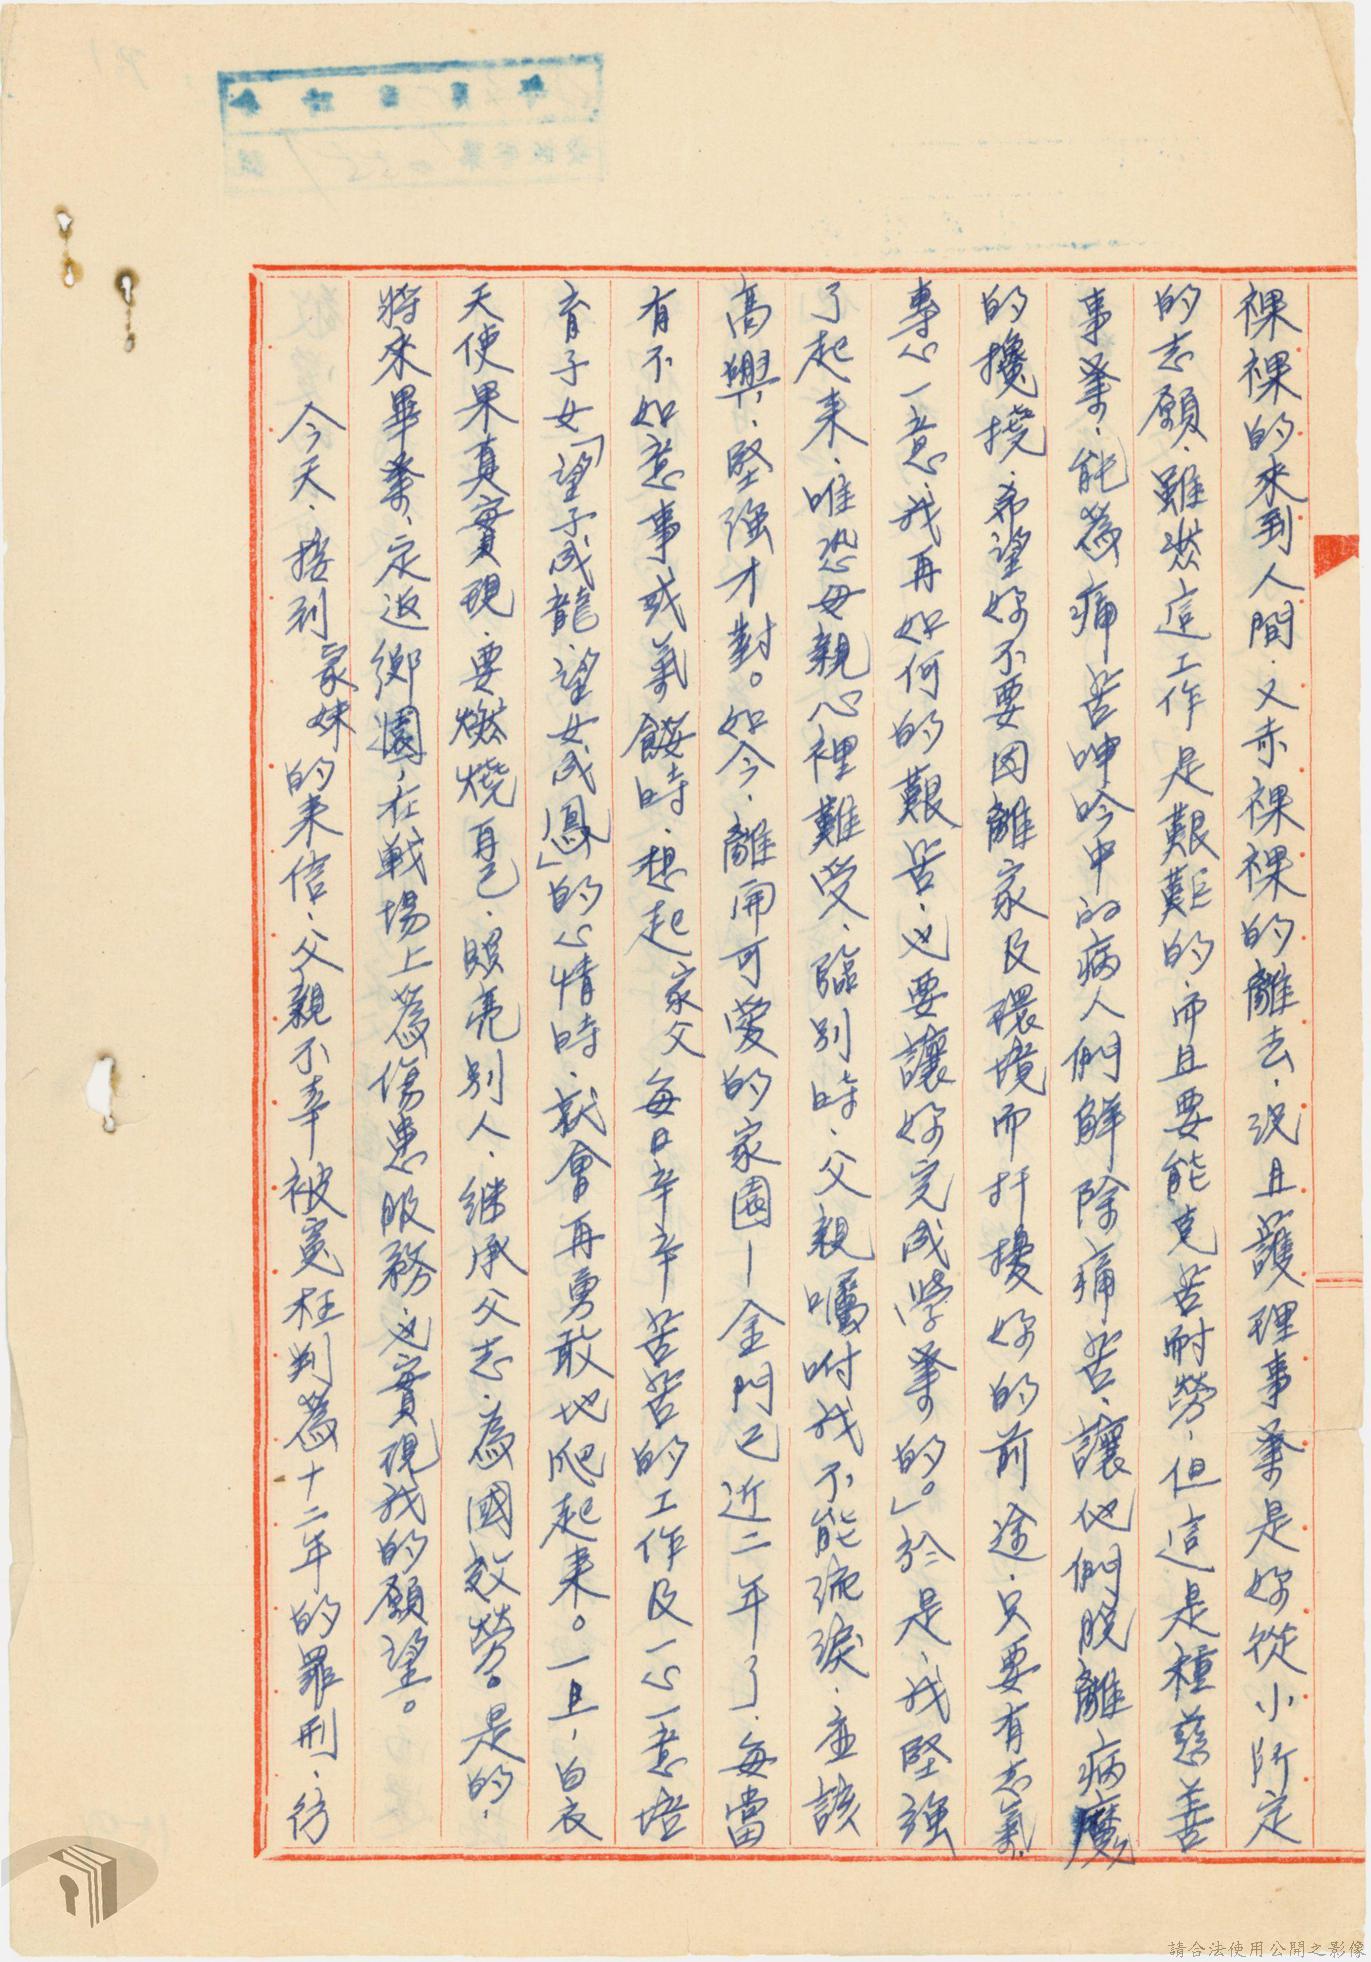 裸裸的來到人間、又赤裸裸的離去、況且護理事業是妳從小所定
的志願、雖然這工作是艱難的、而且要能克苦耐勞、但這是種慈善
事業、能為痛苦呻吟中的病人們解除痛苦、讓他們脫離病魔
的攙撓、希望妳不要因離家及環境而扞擾妳的前途、只要有志氣、
專心一意、我再如何的艱苦、也要讓妳完成學業的。」於是、我堅強
了起來、唯恐母親心裡難受、臨別時、父親囑咐我不能流淚、應該
高興、堅強才對。如今、離開可愛的家園—金門已近二年了、每當
有不如意事或氣餒時、想起家父每日辛辛苦苦的工作及一心一意培
育子女「望子成龍、望女成鳳」的心情時、就會再勇敢地爬起來。一旦、白衣
天使果真實現、要燃燒自己、照亮別人、繼承父志、為國效勞。是的、
將來畢業、定返鄉園、在戰場上為傷患服務、也實現我的願望。
今天、接到家妹的來信、父親不幸被冤枉判為十二年的罪刑、彷
請合法使用公開之影像